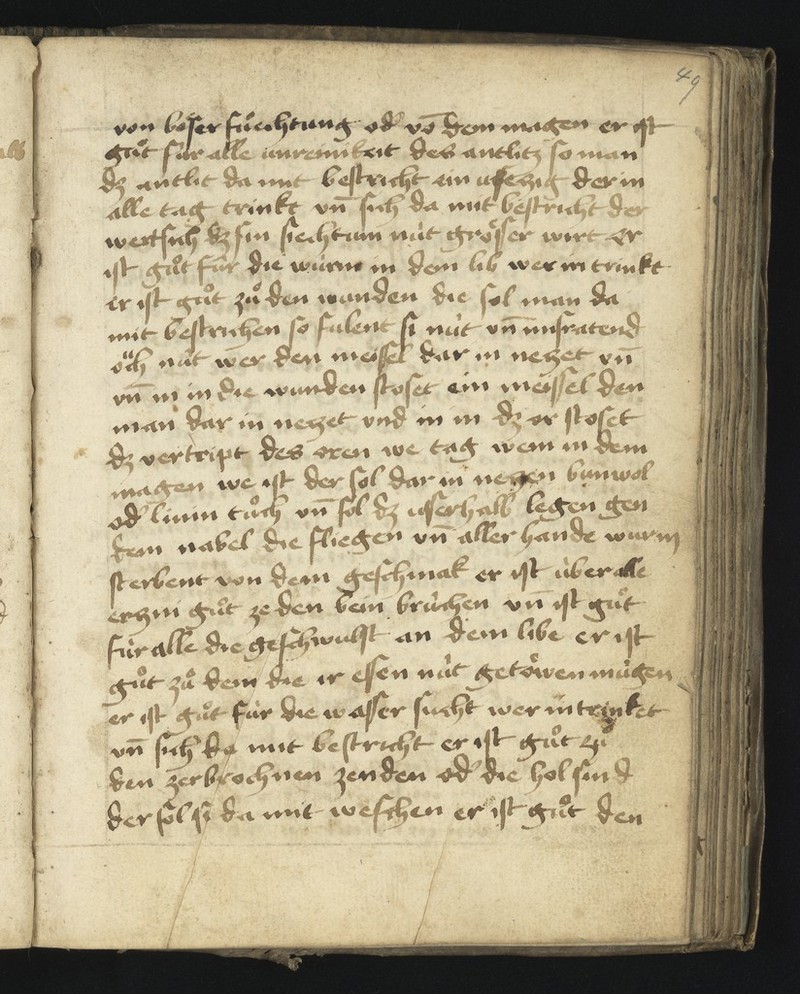 49
von böser fuͤchtung od' vō dem magen er ist
guͦt für alle unreinikeit des antlitz so man
dz antlit da mit bestricht ein usezig der in
alle tag trinkt vn̄ sich da mit bestricht der
wert sich dz sin siechtum nüt grösser wirt er
ist guͦt für die würm in dem lib wer in trinkt
er ist guͦt zuͦ den wunden die sol man da
mit bestrichen so fulent si nüt vn̄ unfratend
öch nüt wer den meissel dar in nezet vn̄
vn̄ in in die wunden stoset ein meissel den
man dar in nezet vnd in in dz or stoset
dz vertript des oren we tag wem in dem
magen we ist der sol dar in nezen bunwol
od' linin tuͦch vn̄ sol dz usserhalb legen gen
dem nabel die fliegen vn̄ aller hande wurm
sterbent von dem geschmak er ist über alle
erzni guͦt ze den bein brüchen vn̄ ist guͦt
für alle die geschwulst an dem libe er ist
guͦt zuͦ dem die ir essen nüt getöwen mügen
er ist guͦt für die wasser sucht wer in trinket
vn̄ sich da mit bestricht er ist guͦt zuͦ
den zerbrochnen zenden od' die hol sind
der sol si da mit weschen er ist guͦt den